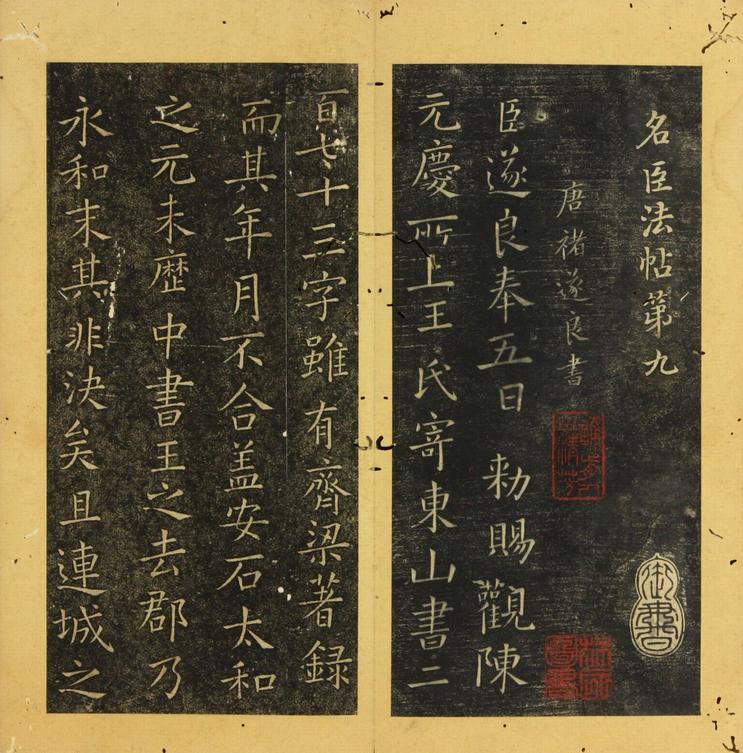 名臣法帖第九
唐褚遂良書
臣遂良奉五日 勑賜觀陳
元慶所上王氏寄東山書二
百七十三字雖有齊梁著録
而其年月不合盖安石太和
之元未歷中書王之去郡乃
永和末其非決矣且連城之
御書